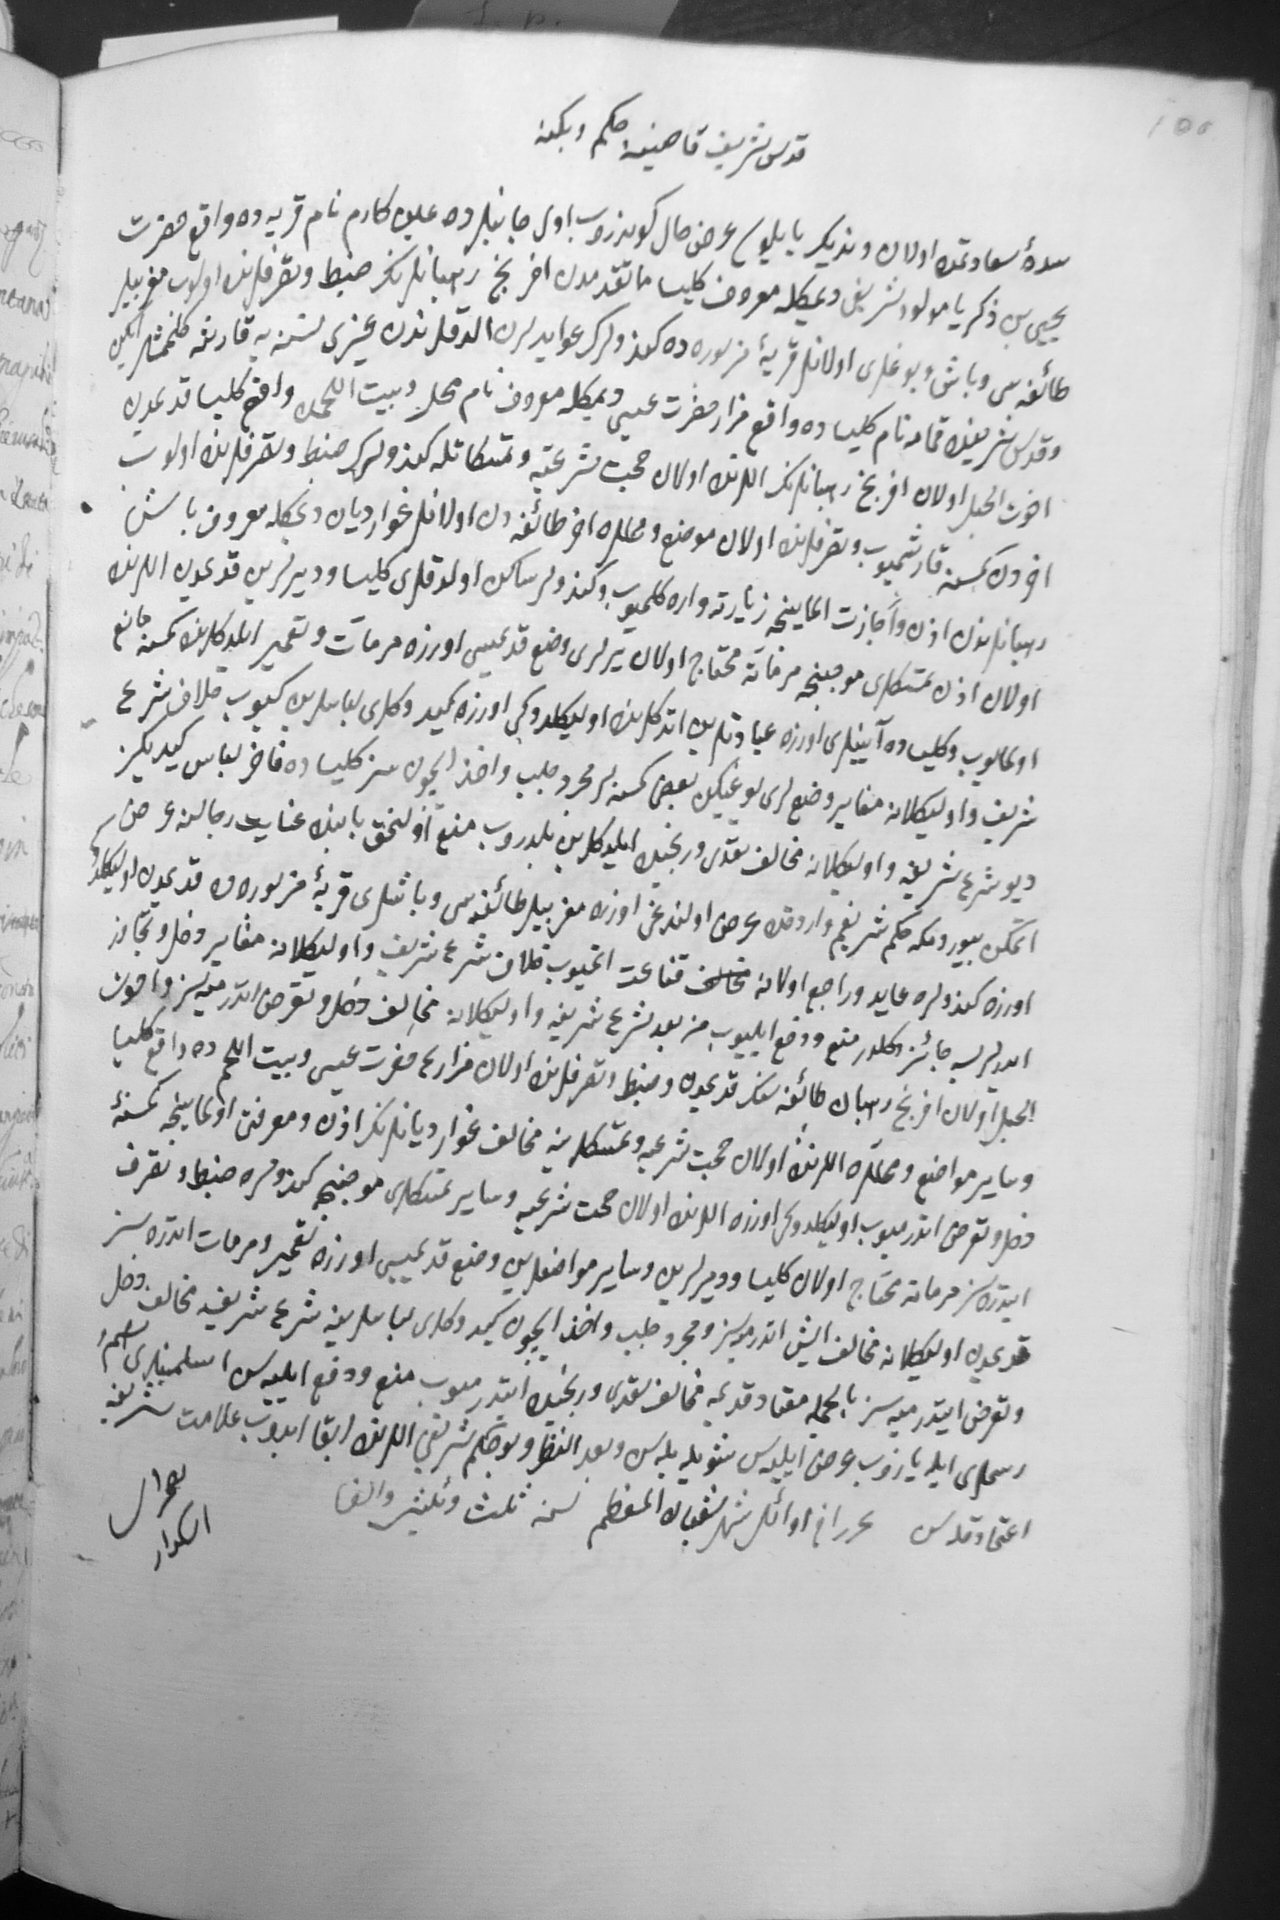 قدس شريف قاضيسنه حكم كه
سدهٔ سعادتمده اولان ونديك بايلوسى عرض حال كوندروب اول جانبلرده عين كارم نام قريه ده واقع حضرت
يحيى بن ذكريا مولود شريفى ديمكله معروف كليسا ماتقدمدن افرنج رهبانلرينك ضبط وتصرفلرنده اولوب مغربيلر
طائفه سى وباش وبوغلرى اولانلر قريهٔ مزبوره ده كندولرك عوايدلرن الدقلرندن غيرى نسنه يه قارشه كلمشلر ايكن
وقدس شريفده قمامه نام كليساده واقع مزار حضرت عيسى ديمكله معروف نام محل وبيت اللحمده واقع كليسا قديمدن
اخوت الحبل اولان افرنج رهبانلرينك اللرنده اولان حجت شرعيه وتمسكاتله كندولرك ضبط وتصرفلرنده اولوب
اخردن كمسنه قارشميوب وتصرفلرنده اولان موضع ومحللره اخر طائفه دن اولانلر غوارديان ديمكله معروف باش
رهبانلرندن اذن واجازت الماينجه زيارته واره كلميوب وكندولر ساكن اولدقلرى كليسا وديرلرين قديمدن اللرنده
اولان اذن تمسكلرى موجبنجه مرماته محتاج اولان يرلرى وضع قديمسى اوزره مرمات وتعمير ايلدكلرنده كمسنه مانع
اولمايوب وكليساده آيينلرى اوزره عبادتلرين اتدكلرنده اوليكلدوكى اوزره كيدوكلرى لباسلرين كيوب خلاف شرع
شريف واوليكلانه مغاير وضعلرى يوغيكن بعض كمسنه لر مجرد جلب واخذ ايچون سز كليساده فاخر لباس كيديكز
ديو شرع شريفه واوليكلانه مخالف تعدى ورنجيده ايلدكلرين بلدروب منع اولنمق بابنده عنايت رجاسنه عرض
اتمكن بيوردمكه حكم شريفم واردقده عرض اولندوغى اوزره مغربيلر طائفه سى وباشلرى قريهٔ مزبوره ده قديمدن اوليكلدوكى
اوزره كندولره عايد وراجع اولانه قناعت اتميوب خلاف شرع شريف واوليكلانه مغاير دخل وتجاوز
ايدرلرسه جائز دكلدر منع ودفع ايليوب من بعد شرع شريفه واوليكلانه مخالف دخل وتعرض اتدرميه سز واخوت
الحبل اولان افرنج رهبان طائفه سنك قديمدن ضبط وتصرفلرنده اولان مزار حضرت عيسى وبيت اللحمده واقع كليسا
وساير مواضع ومحللره اللرنده اولان حجت شرعيه وتمسكلرينه مخالف غوارديانلرينك اذن ومعرفتى اولماينجه كمسنه يى
دخل وتعرض اتدرميوب اوليكلدوكى اوزره اللرنده اولان حجت شرعيه وساير تمسكلرى موجبنجه كندولره ضبط وتصرف
ايتدره سز مرماته محتاج اولان كليسا وديرلرين وساير مواضعلرين وضع قديمسى اوزره تعمير ومرمات اتدره سز
قديمدن اوليكلانه مخالف ايش اتدرميه سز ومجرد جلب واخذ ايچون كيدوكلرى لباسلرينه شرع شريفه مخالف دخل
وتعرض ايتدرميه سز بالجمله معتاد قديمه مخالف تعدى ورنجيده ايتدرميوب منع ودفع ايليه سن اسلمينلرى اسم
رسملرى ايله يازوب عرض ايليه سن شويله بله سن وبعد النظر بو حكم شريفى اللرنده ابقا ايدوب علامت شريفه
اعتماد قله سن تحريرا فى اوائل شهر شعبان المعظم سنه ثلث وثلثين والف